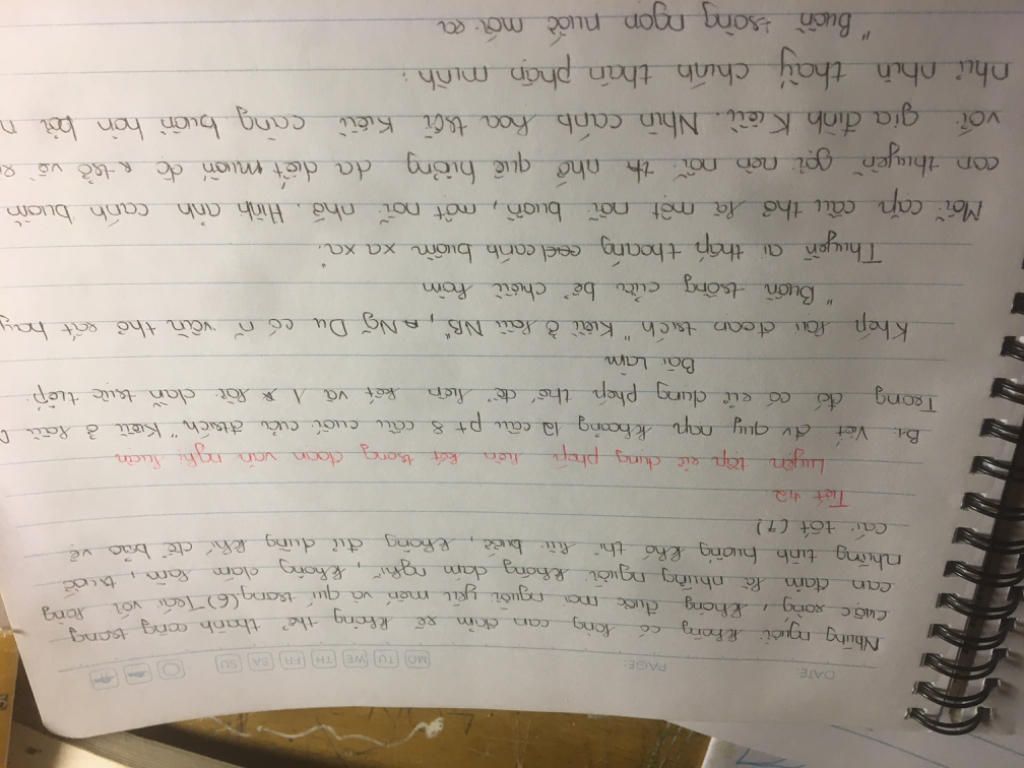 DATE: PAGE: MO TU WE TH FR SA SU
Những người không có lòng can đảm sẽ không thể thành công trong
cuộc sống, không được mọi người yêu mến và quí trọng (6) Trái với lòng
can đảm là những người không dám nghĩ, không dám làm, trước
những tình huống khó thì lùi bước, không đủ dũng khí để bảo vệ
cái tốt (7)
Tiết 42
Luyện tập sử dụng phép liên kết trong đoạn văn nghị luận
B1: Viết đv quy nạp khoảng 12 câu pt 8 câu cuối của đtrích "Kiều ở lầu
Trong đó có sử dụng phép thế để liên kết và 1 lời dẫn trực tiếp.
Bài làm
Khép lại đoạn trích "Kiều ở lầu NB", Ng Du có n vần thơ rất hay
"Buồn trông cửa bể chiều hôm
Thuyền ai thấp thoáng cánh buồm xa xa".
Mỗi cặp câu thơ là một nỗi buồn, một nỗi nhớ. Hình ảnh cánh buồm
con thuyền gợi nên nỗi nhớ quê hương da diết muốn đc trở về
với gia đình Kiều. Nhìn cánh hoa trôi Kiều càng buồn hơn bởi n
như nhìn thấy chính thân phận mình:
"Buồn trông ngọn nước mới sa